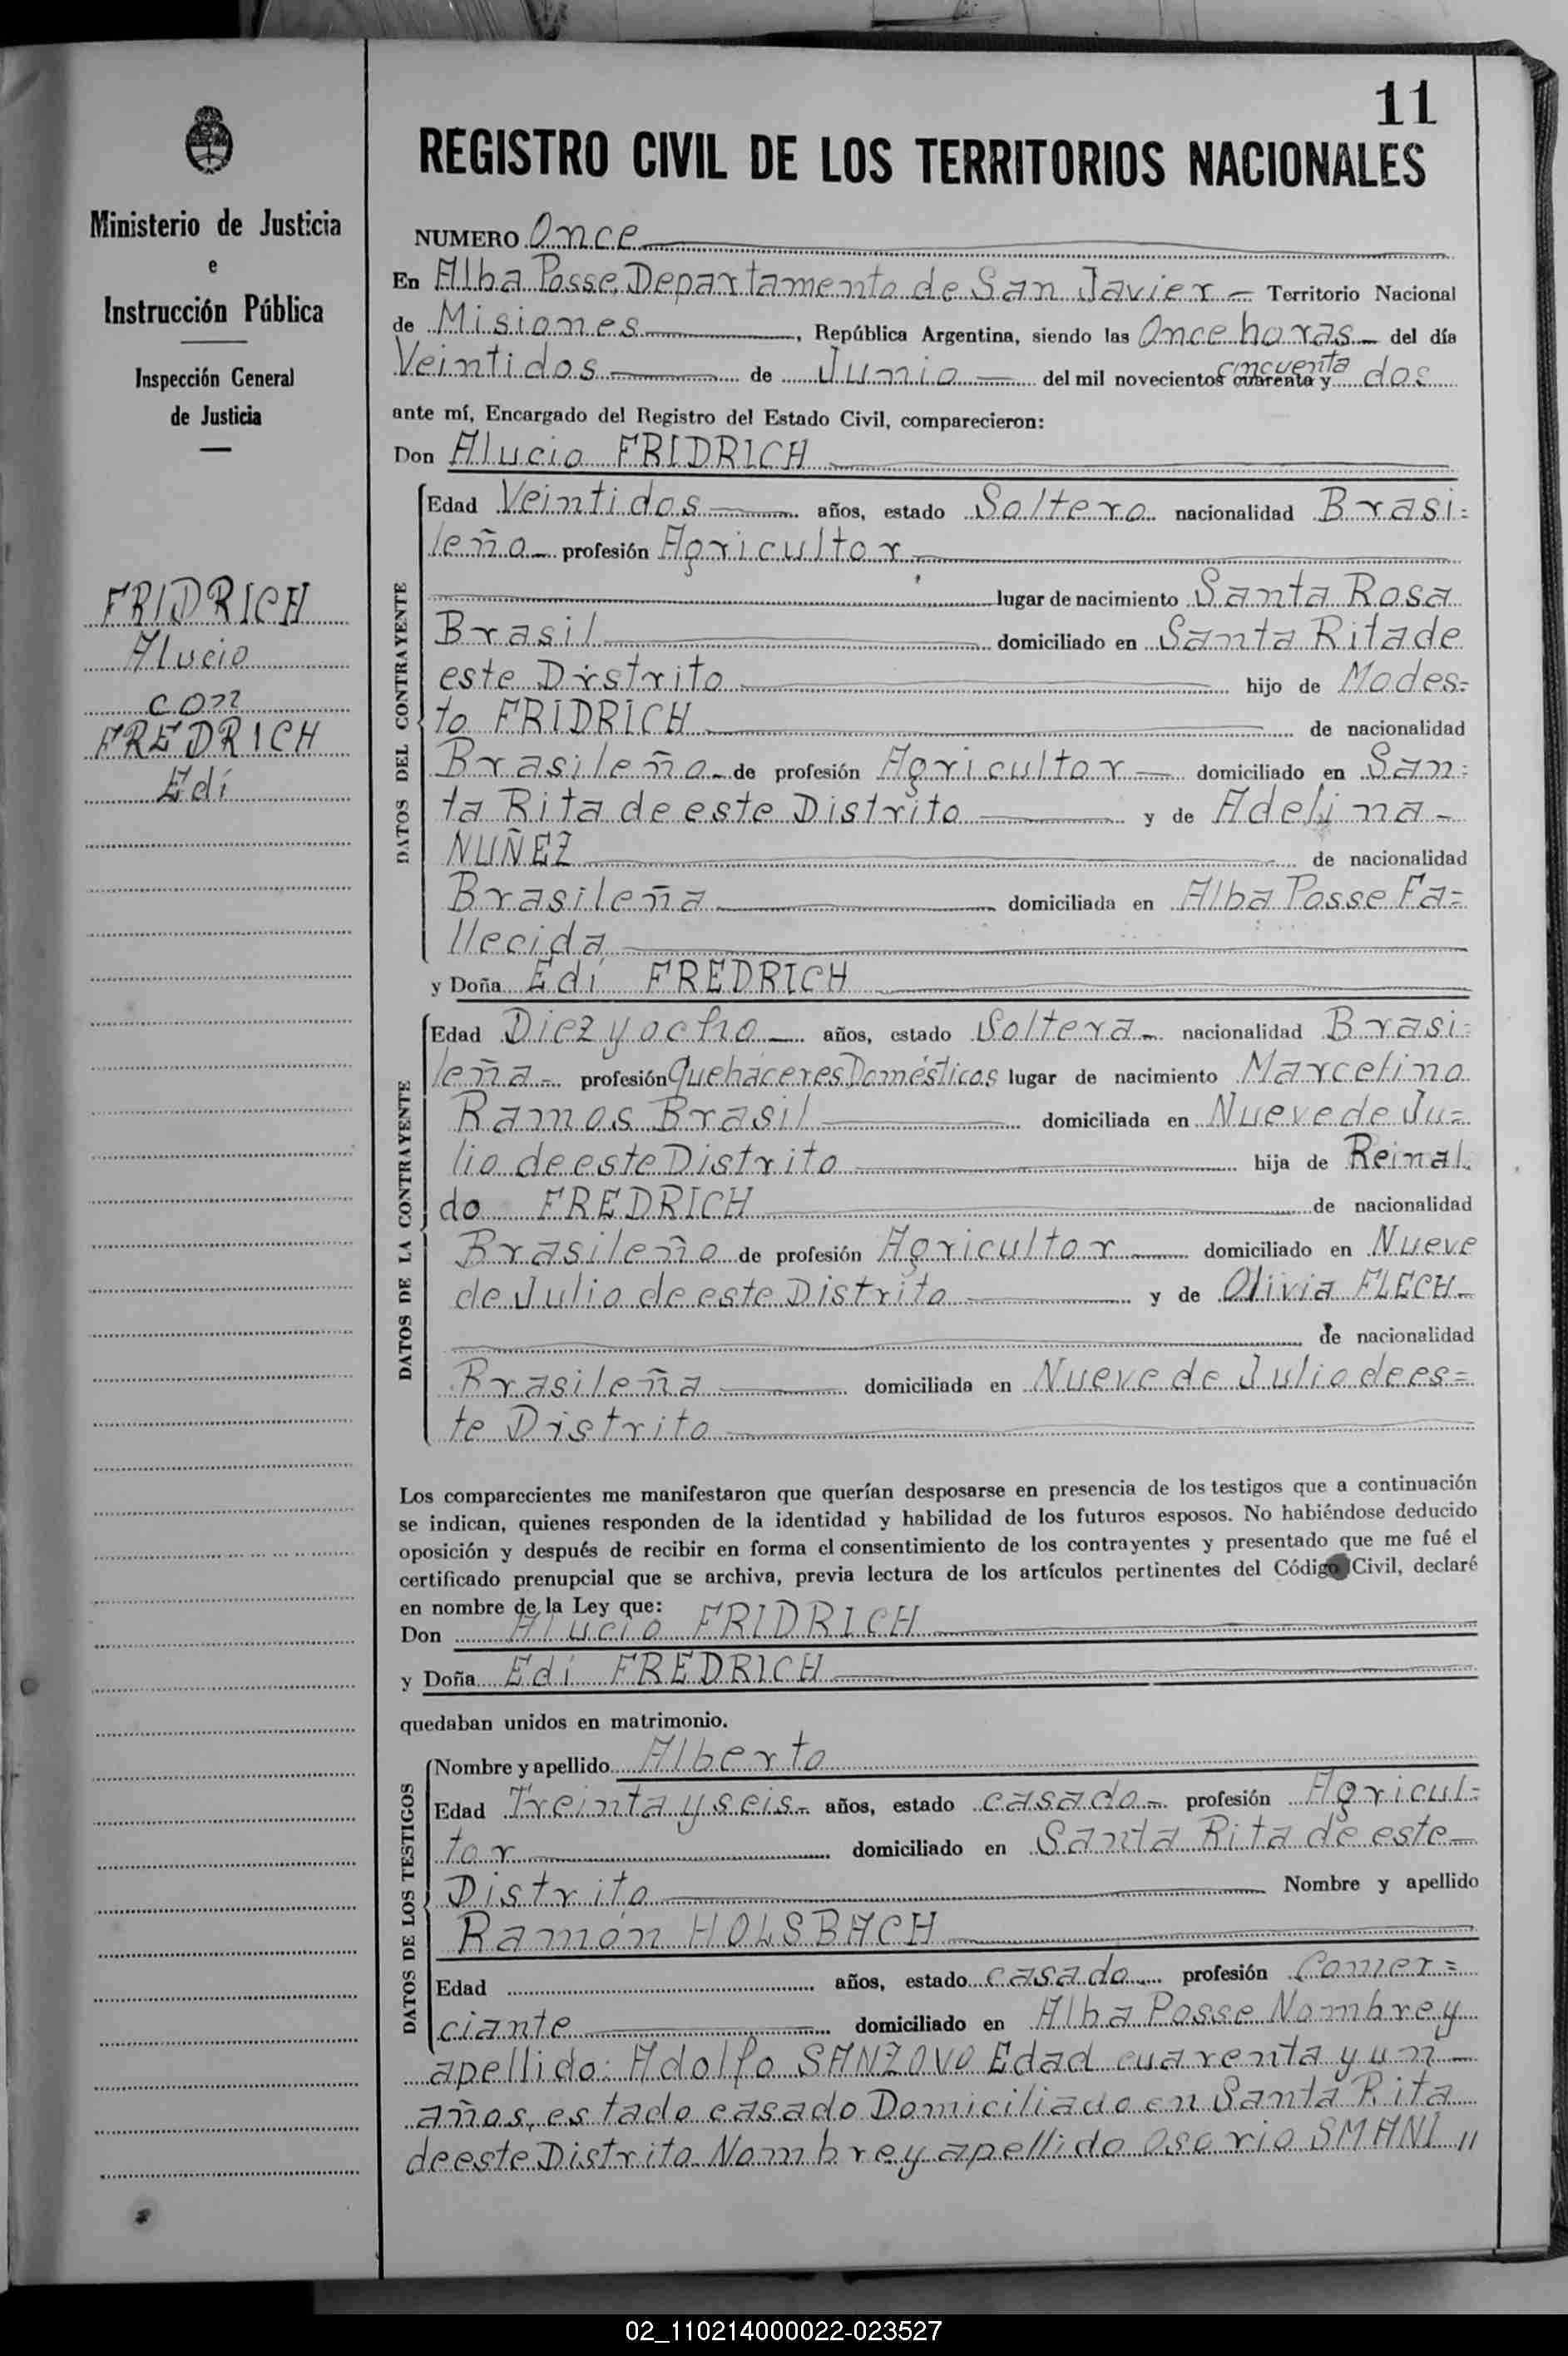 11
REGISTRO CIVIL DE LOS TERRITORIOS NACIONALES
Ministerio de Justicia
e
Instrucción Pública
Inspección General
de Justicia
FRIDRICH
Alucio
con
FREDRICH
Edí
NUMERO Once
En Alba Posse Departamento de San Javier - Territorio Nacional
de Misiones, República Argentina, siendo las Once horas - del día
Veintidos de Junio del mil novecientos cuarenta y cincuenta dos
ante mí, Encargado del Registro del Estado Civil, comparecieron:
Don Alucio FRIDRICH
DATOS DEL CONTRAYENTE
Edad Veintidos años, estado Soltero nacionalidad Brasi=
leño - profesión Agricultor
lugar de nacimiento Santa Rosa
Brasil domiciliado en Santa Rita de
este Distrito hijo de Modes=
to FRIDRICH de nacionalidad
Brasileño - de profesión Agricultor - domiciliado en San=
ta Rita de este Distrito y de Adelina -
NUÑEZ de nacionalidad
Brasileña domiciliada en Alba Posse Fa=
llecida
y Doña Edí FREDRICH
DATOS DE LA CONTRAYENTE
Edad Diez y ocho - años, estado Soltera - nacionalidad Brasi=
leña - profesión Quehaceres Domésticos lugar de nacimiento Marcelino
Ramos Brasil domiciliada en Nueve de Ju=
lio de este Distrito hija de Reinal
do FREDRICH de nacionalidad
Brasileño de profesión Agricultor domiciliado en Nueve
de Julio de este Distrito y de Olivia FLECH -
de nacionalidad
Brasileña domiciliada en Nueve de Julio de es=
te Distrito
Los comparecientes me manifestaron que querían desposarse en presencia de los testigos que a continuación
se indican, quienes responden de la identidad y habilidad de los futuros esposos. No habiéndose deducido
oposición y después de recibir en forma el consentimiento de los contrayentes y presentado que me fué el
certificado prenupcial que se archiva, previa lectura de los artículos pertinentes del Código Civil, declaré
en nombre de la Ley que:
Don Alucio FRIDRICH
y Doña Edí FREDRICH
quedaban unidos en matrimonio.
DATOS DE LOS TESTIGOS
Nombre y apellido Alberto
Edad Treinta y seis - años, estado casado - profesión Agricul=
tor domiciliado en Santa Rita de este -
Distrito Nombre y apellido
Ramón HOLSBACH
Edad años, estado casado profesión Comer=
ciante domiciliado en Alba Posse Nombre y
apellido: Adolfo SANZOVO Edad cuarenta y un -
años, estado casado Domiciliado en Santa Rita
de este Distrito Nombre y apellido Osorio SMANI "
02_110214000022-023527